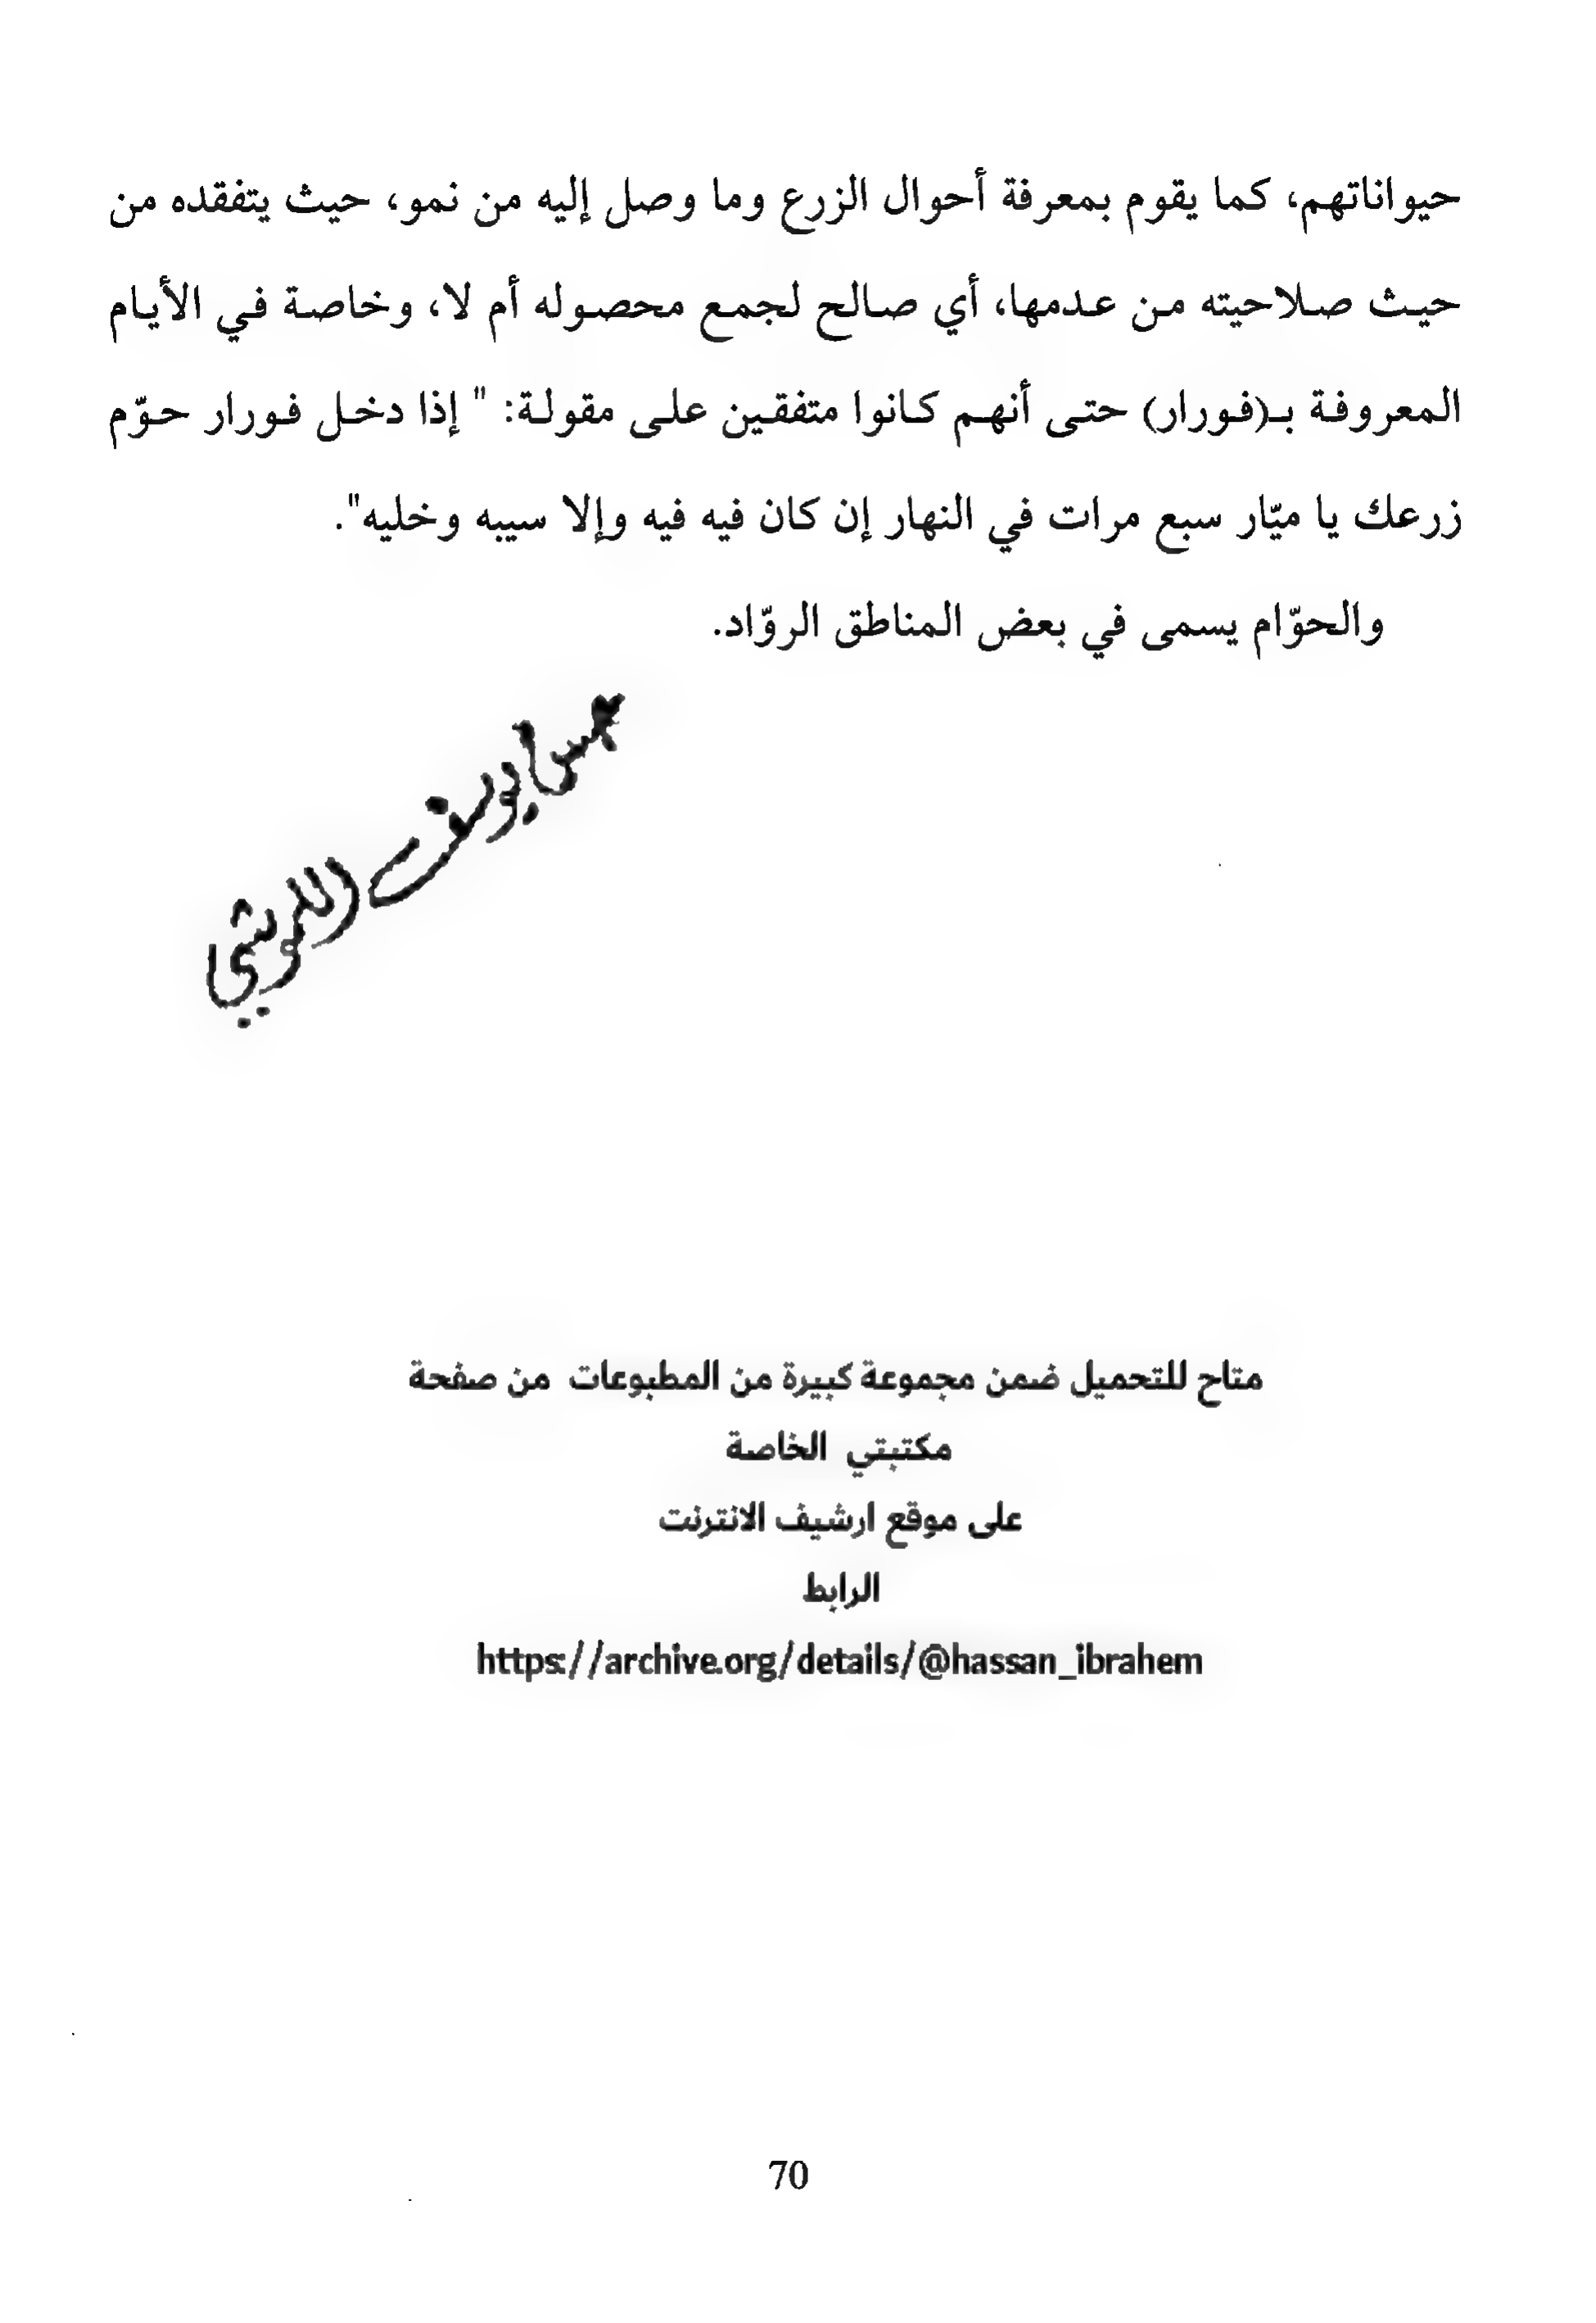 حيواناتهم، كما يقوم بمعرفة أحوال الزرع وما وصل إليه من نمو، حيث يتفقده من
حيث صلاحيته من عدمها، أي صالح لجمع محصوله أم لا، وخاصة في الأيام
المعروفة بـ(فورار) حتى أنهم كانوا متفقين على مقولة: " إذا دخل فورار حوّم
زرعك يا ميّار سبع مرات في النهار إن كان فيه فيه وإلا سيبه وخليه".
والحوّام يسمى في بعض المناطق الروّاد.
يوسف
متاح للتحميل ضمن مجموعة كبيرة من المطبوعات من صفحة
مكتبتي الخاصة
على موقع ارشيف الانترنت
الرابط
https://archive.org/details/@hassan_ibrahem
70